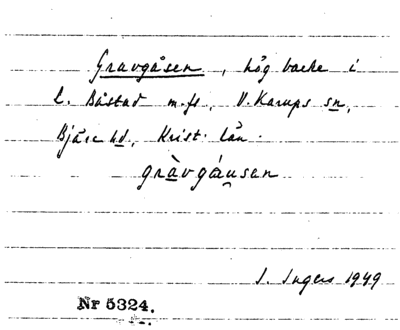 Gravgåsen, hög backe i
L. Båstad m.fl, V. Karups sn,
Bjäre hd, Krist. län.
gràvgáusan
I. Ingers 1949
Nr 5324.